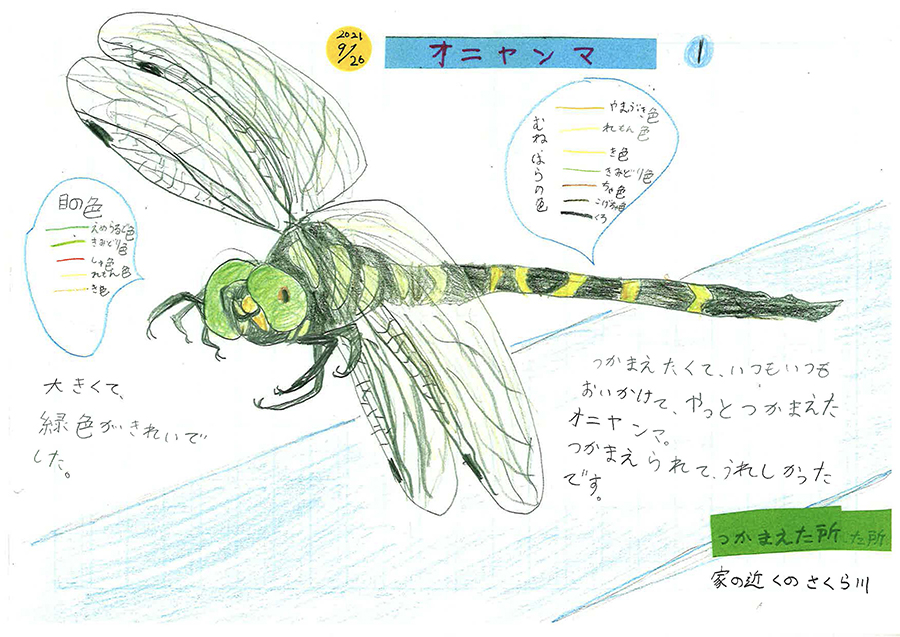 2021
9/26
オニヤンマ
1
むねばらの色
やまぶき色
れもん色
き色
きみどり色
ちゃ色
こげちゃ色
くろ
目の色
えめらるど色
きみどり色
しゅ色
れもん色
き色
大きくて、
緑色がきれいで
した。
つかまえたくて、いつもいつも
おいかけて、やっとつかまえた
オニヤンマ。
つかまえられて、うれしかった
です。
つかまえた所
た所
家の近くのさくら川